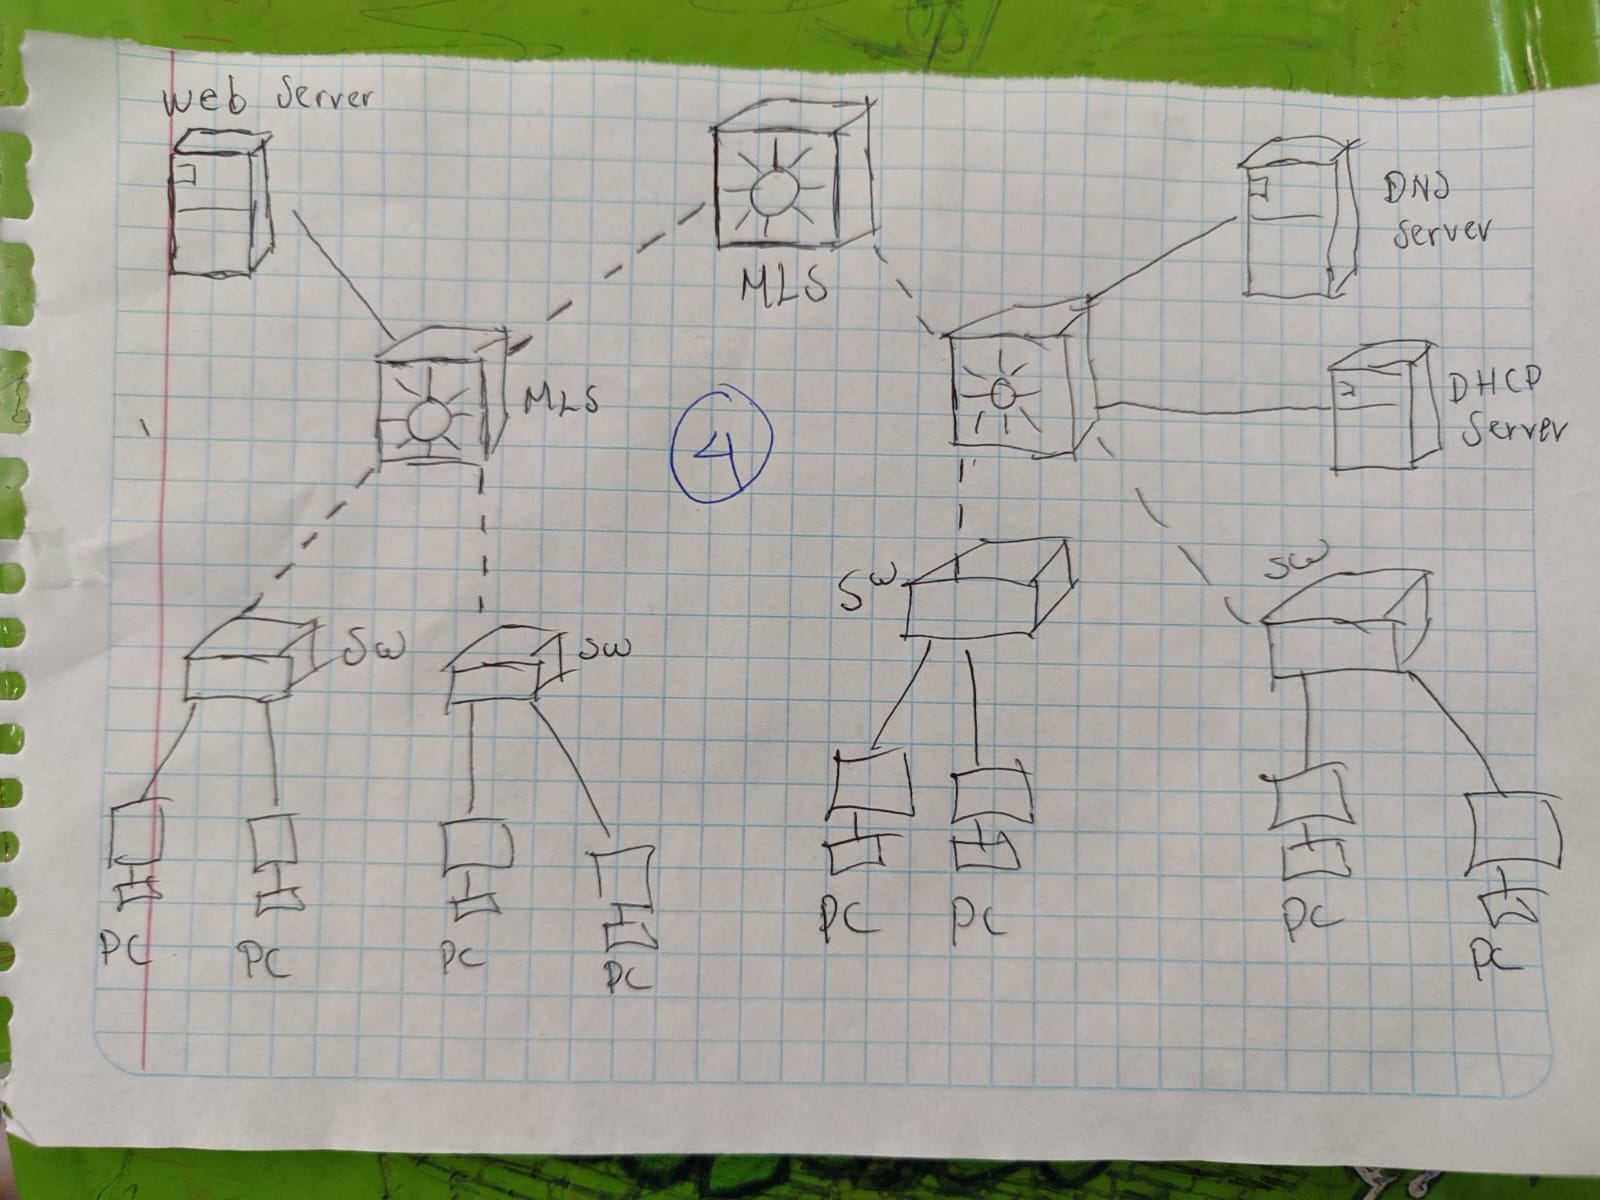 Web Server
MLS
DNS
Server
MLS
DHCP
Server
4
SW
SW
SW
SW
PC
PC
PC
PC
PC
PC
PC
PC